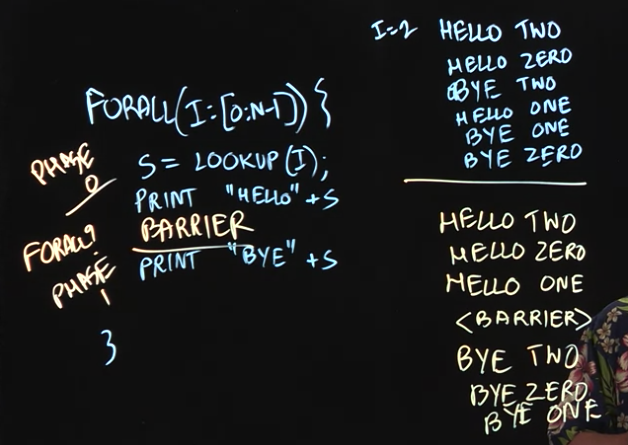 FORALL(I:[0:N-1]){
PHASE
0
S = LOOKUP(I);
PRINT "HELLO" + S
BARRIER
FORALL?
PHASE
1
PRINT "BYE" + S
}
I=2 HELLO TWO
HELLO ZERO
BYE TWO
HELLO ONE
BYE ONE
BYE ZERO
HELLO TWO
HELLO ZERO
HELLO ONE
<BARRIER>
BYE TWO
BYE ZERO
BYE ONE